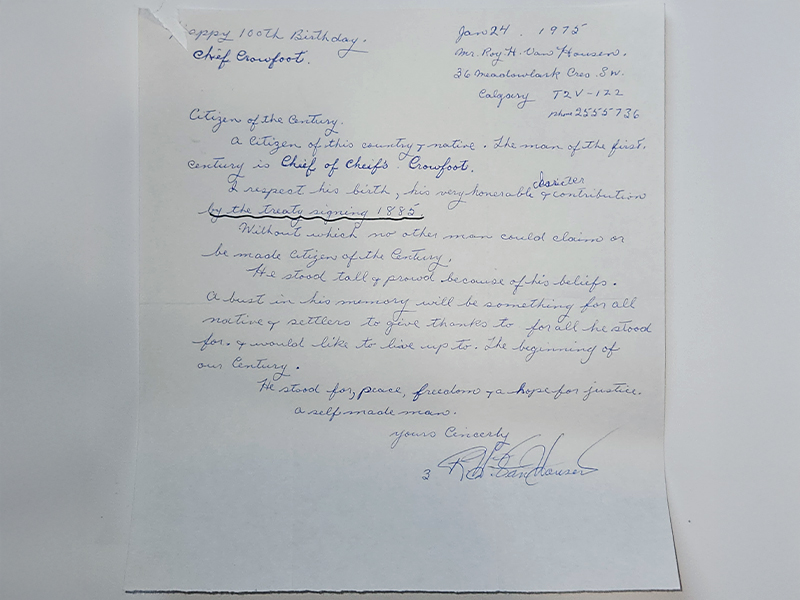 appy 100th Birthday.
Chief Crowfoot.
Jan 24, 1975
Mr. Roy H. Van Housen.
36 Meadowlark Cres. S.W.
Calgary T2V-1Z2
phone 2555736
Citizen of the Century.
A Citizen of this country & native. The man of the first.
century is Chief of Cheifs Crowfoot.
I respect his birth, his very honerable & contribution
by the treaty signing 1885.
Without which no other man could claim or
be made Citizen of the Century.
He stood tall & prowd because of his beliefs.
A bust in his memory will be something for all
native & settlers to give thanks to for all he stood
for. & would like to live up to. The beginning of
our Century.
He stood for, peace, freedom & a hope for justice.
a self made man.
yours Cincerly
3 R.H. Van Housen